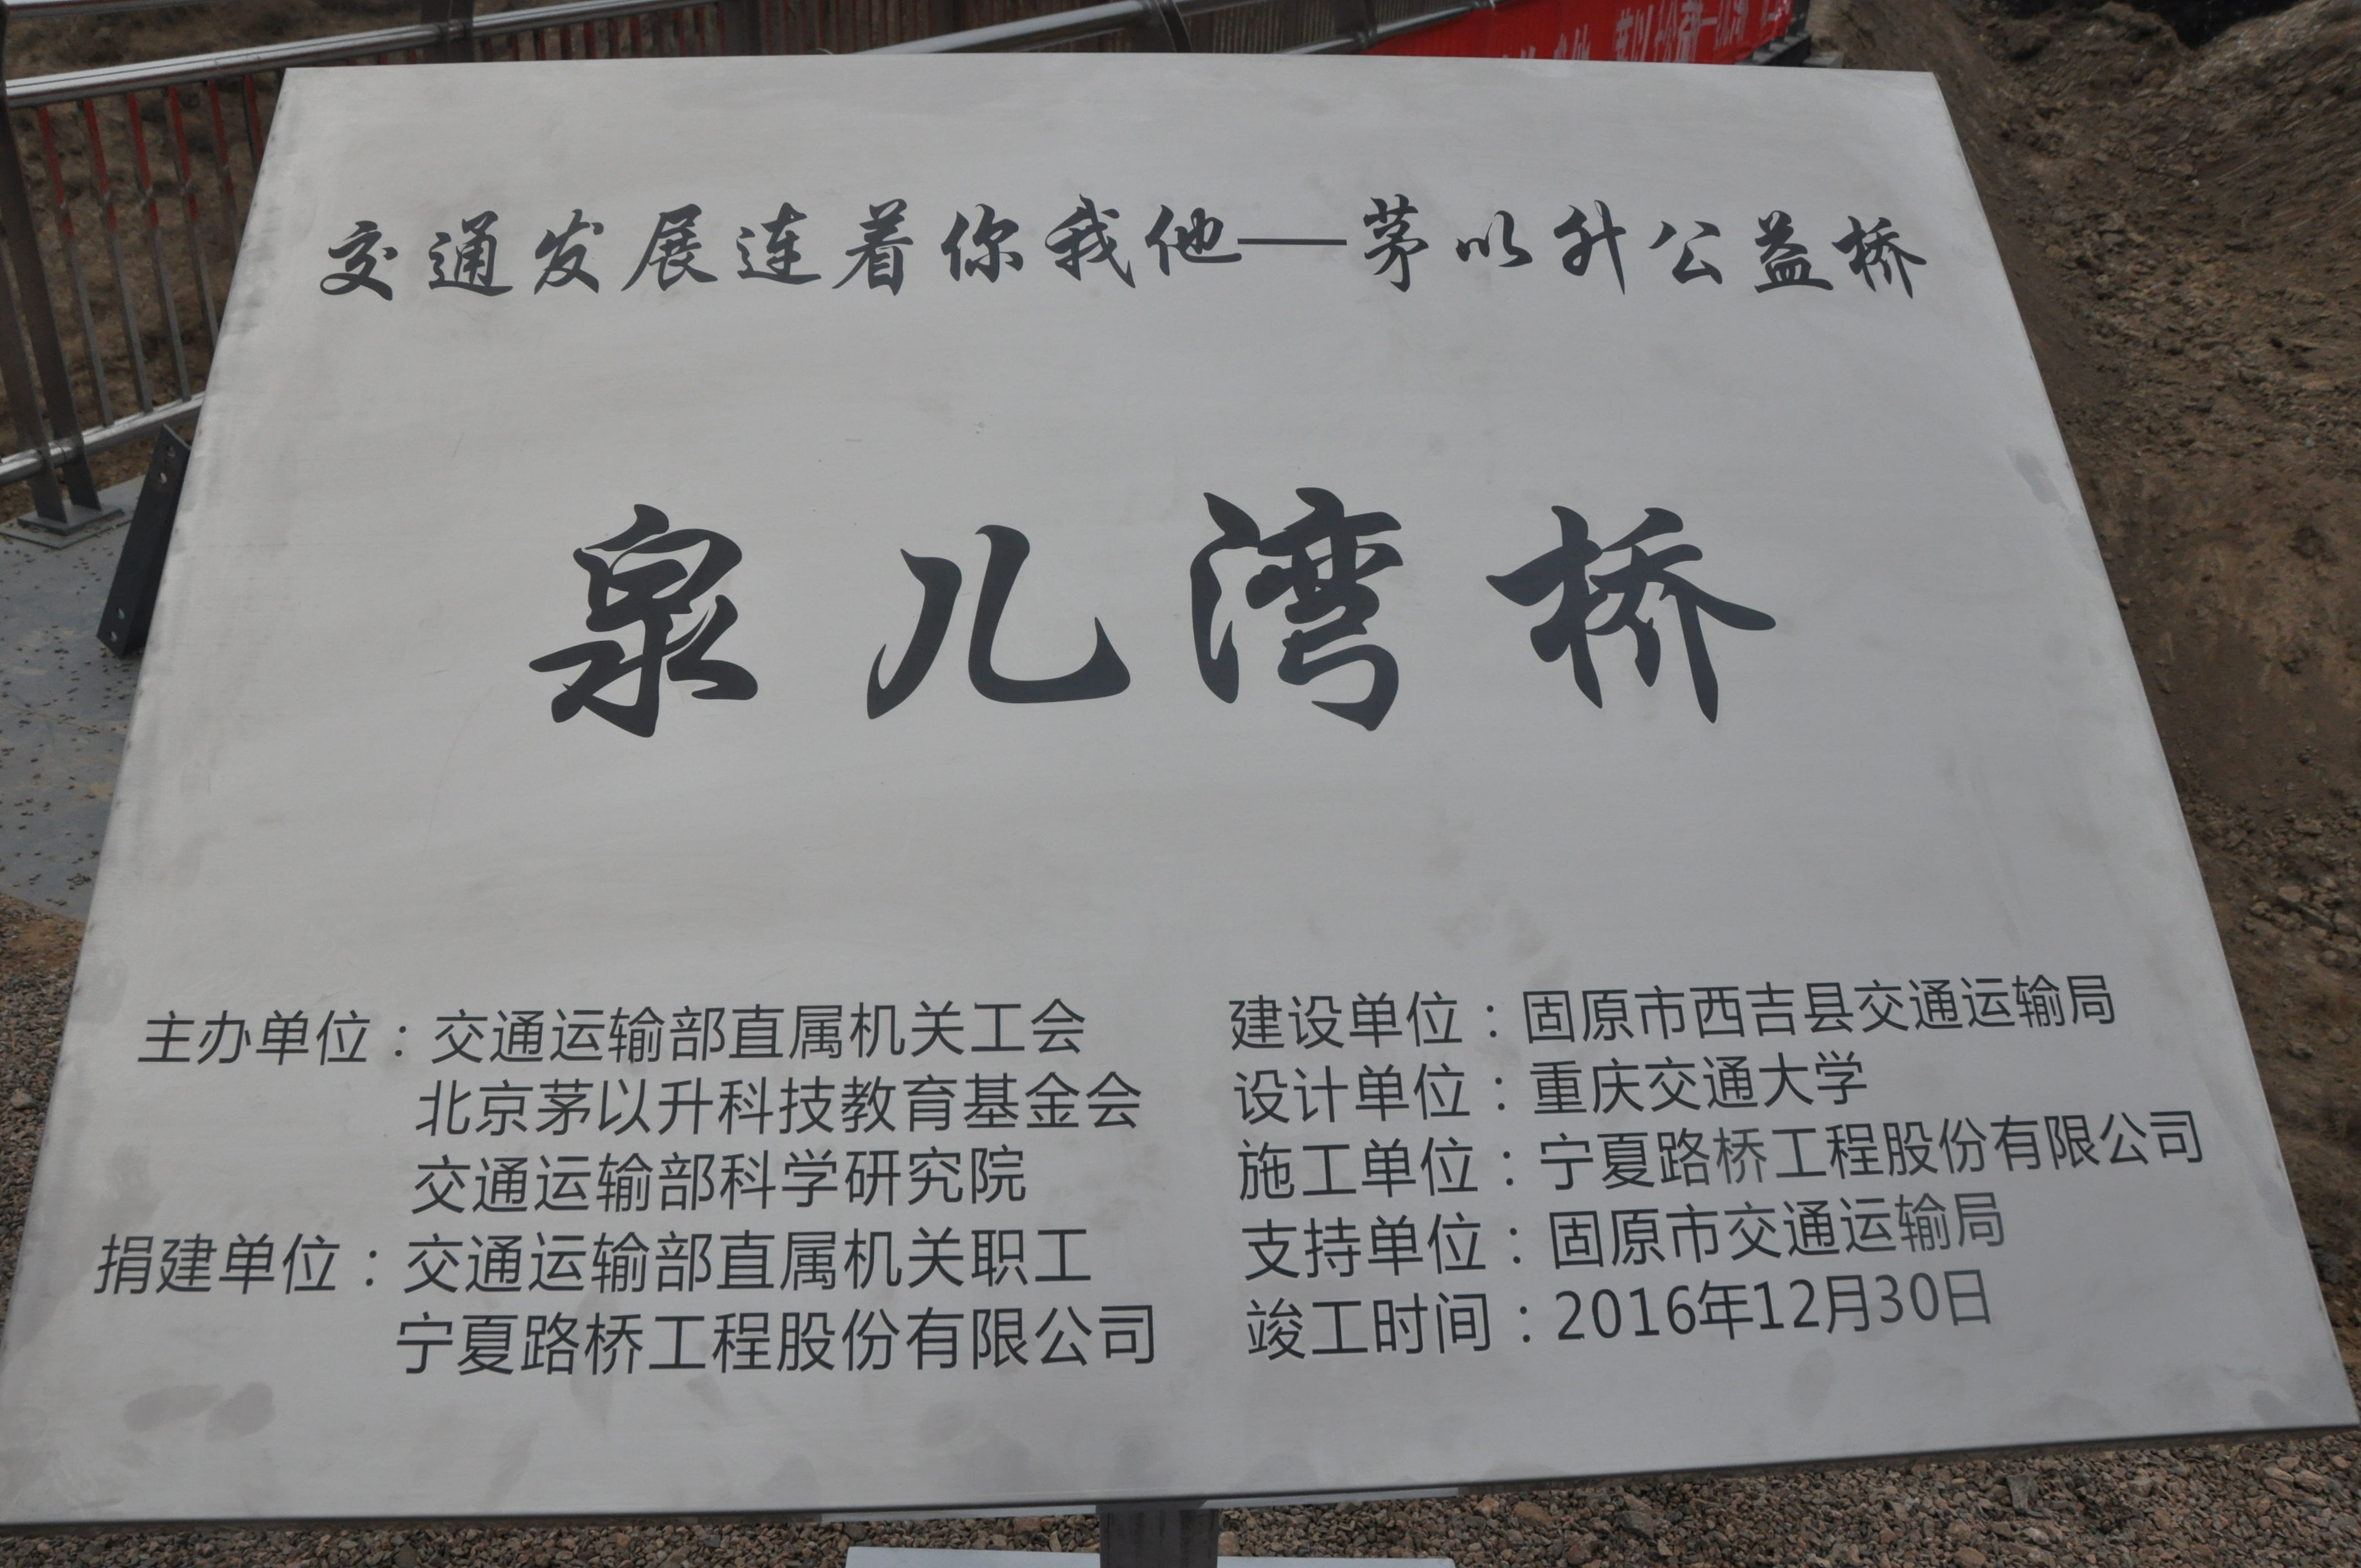 交通发展连着你我他——茅以升公益桥
泉儿湾桥
主办单位：交通运输部直属机关工会
北京茅以升科技教育基金会
交通运输部科学研究院
捐建单位：交通运输部直属机关职工
宁夏路桥工程股份有限公司
建设单位：固原市西吉县交通运输局
设计单位：重庆交通大学
施工单位：宁夏路桥工程股份有限公司
支持单位：固原市交通运输局
竣工时间：2016年12月30日